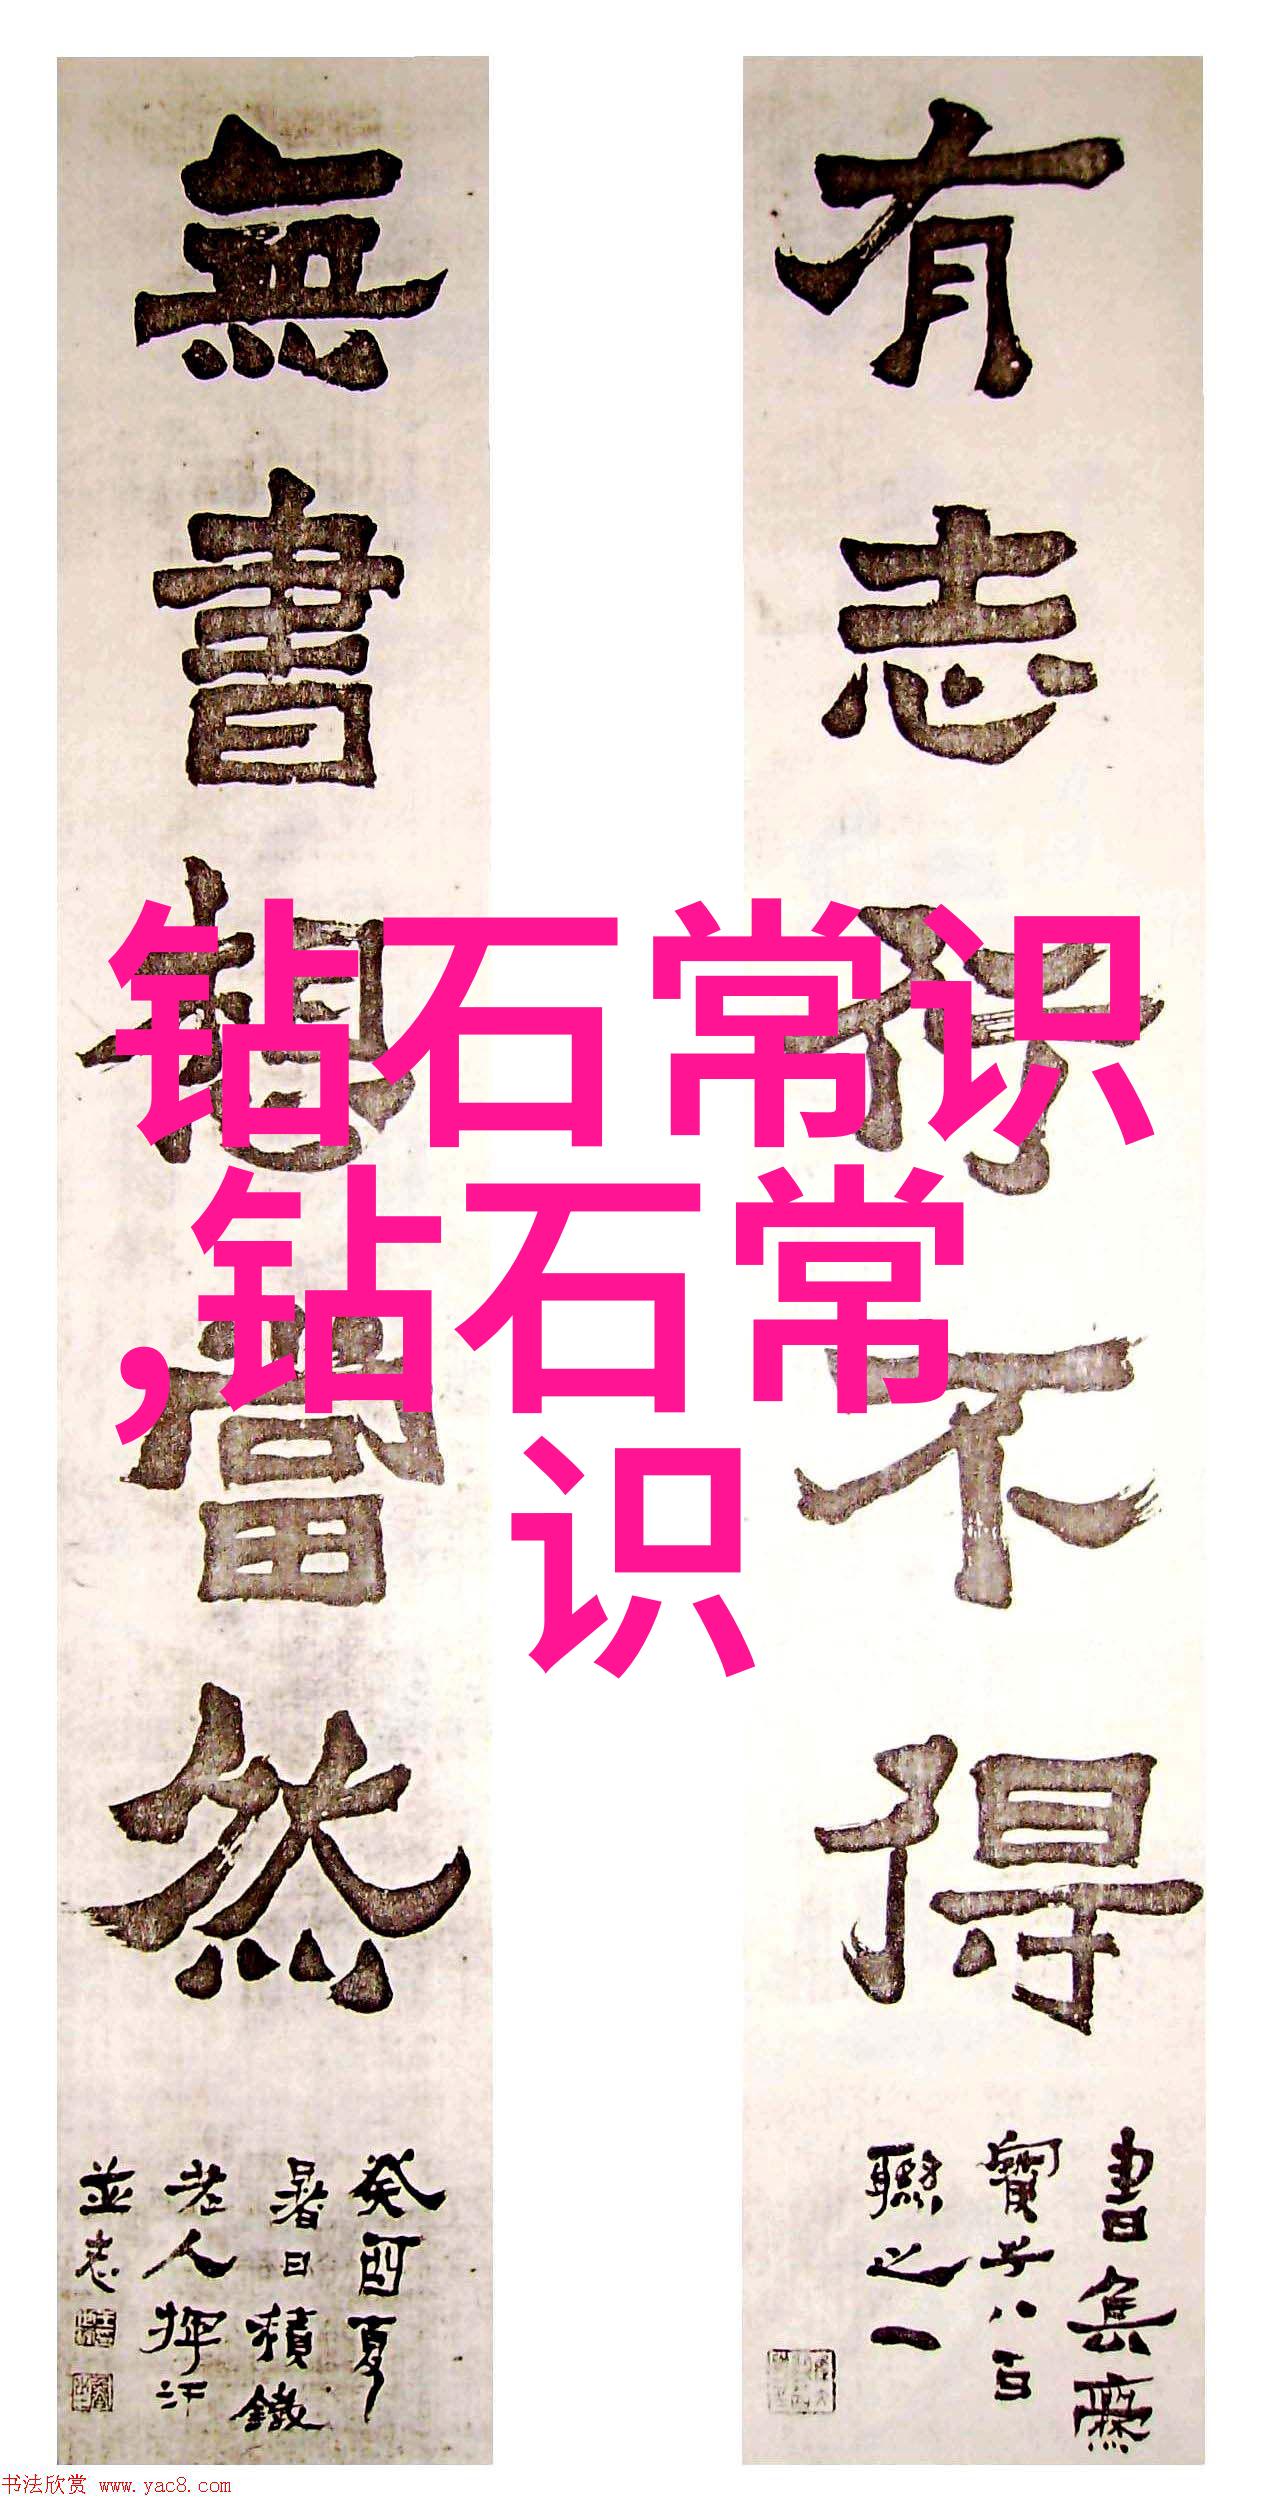 有志行不得
書集齋
寶子八百
聯之一
無書想當然
癸酉夏
暑日積鐵
老人揮汗
並志
钻石常识
,钻石常
识
书法欣赏 www.yac8.com